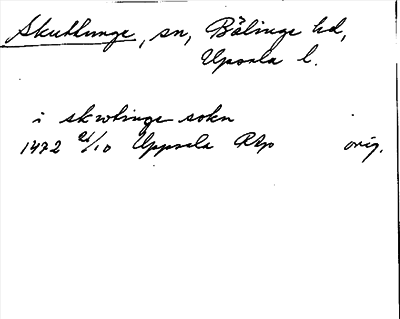 Skuttunge, sn, Bälinge hd,
Upsala l.
i skwtinge sokn
1472 21/10 Uppsala RAp orig.